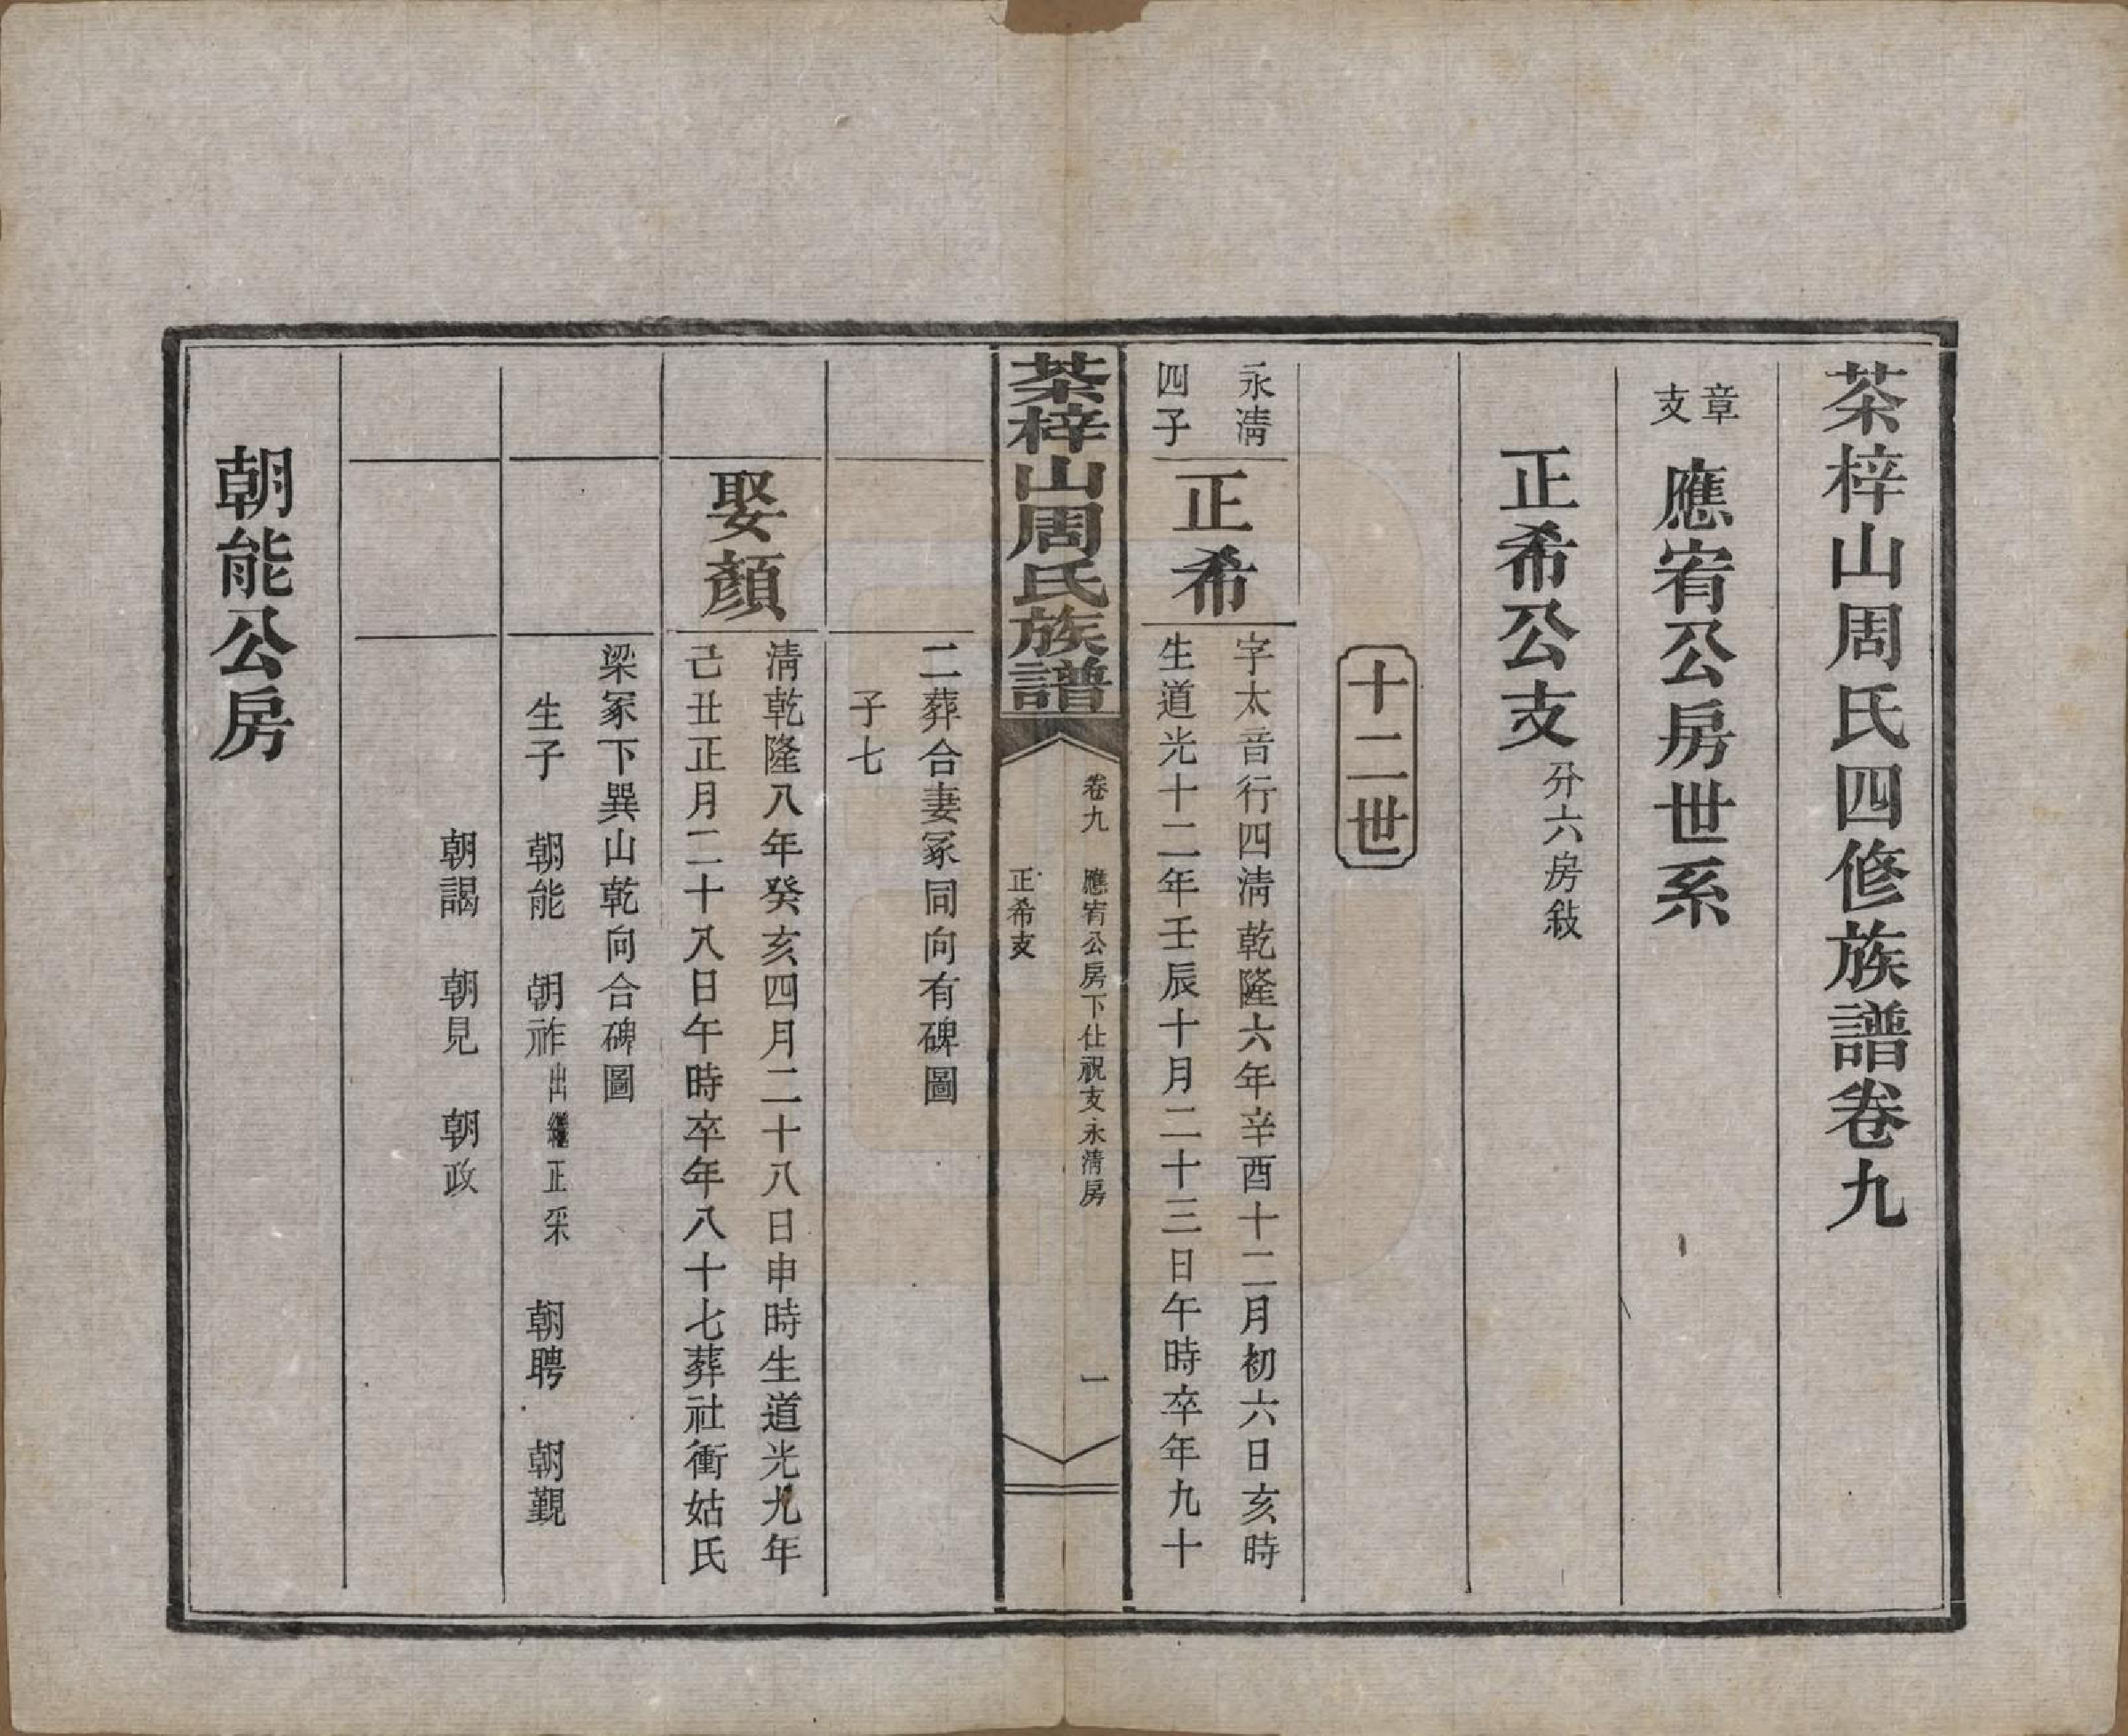 茶梓山周氏四修族譜卷九
章支
應宥公房世系
正希公支 分六房敍
十二世
永淸四子
正希
字太音行四淸乾隆六年辛酉十二月初六日亥時
生道光十二年壬辰十月二十三日午時卒年九十
茶梓山周氏族譜
卷九 應宥公房下仕祝支永淸房 一
正希支
二葬合妻冢同向有碑圖
子七
娶顏
淸乾隆八年癸亥四月二十八日申時生道光九年
己丑正月二十八日午時卒年八十七葬社衝姑氏
梁冢下巽山乾向合碑圖
生子 朝能 朝祚出繼正采 朝聘 朝覲
朝謁 朝見 朝政
朝能公房